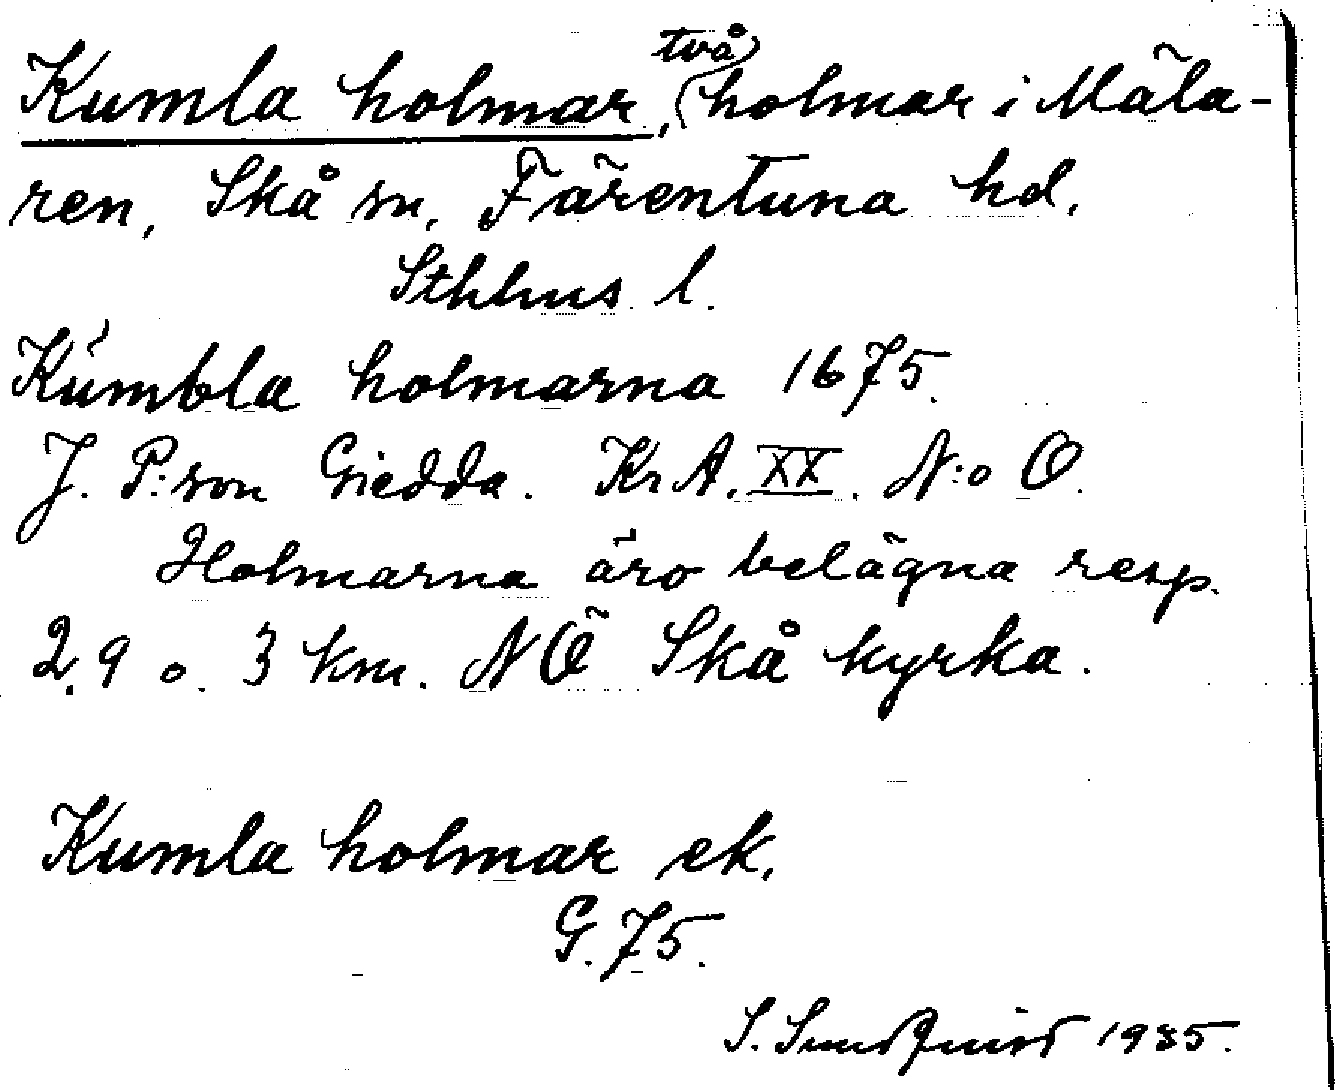 Kumla holmar, två holmar i Mäla-
ren, Skå sn, Färentuna hd,
Sthlms l.
Kúmbla holmarna 1675.
J. P:son Giedda. Kr A. XX. N:o O.
Holmarna äro belägna resp.
2,9 o. 3 km. NÖ Skå kyrka.
Kumla holmar ek.
G. 75.
S. Sundquist 1935.